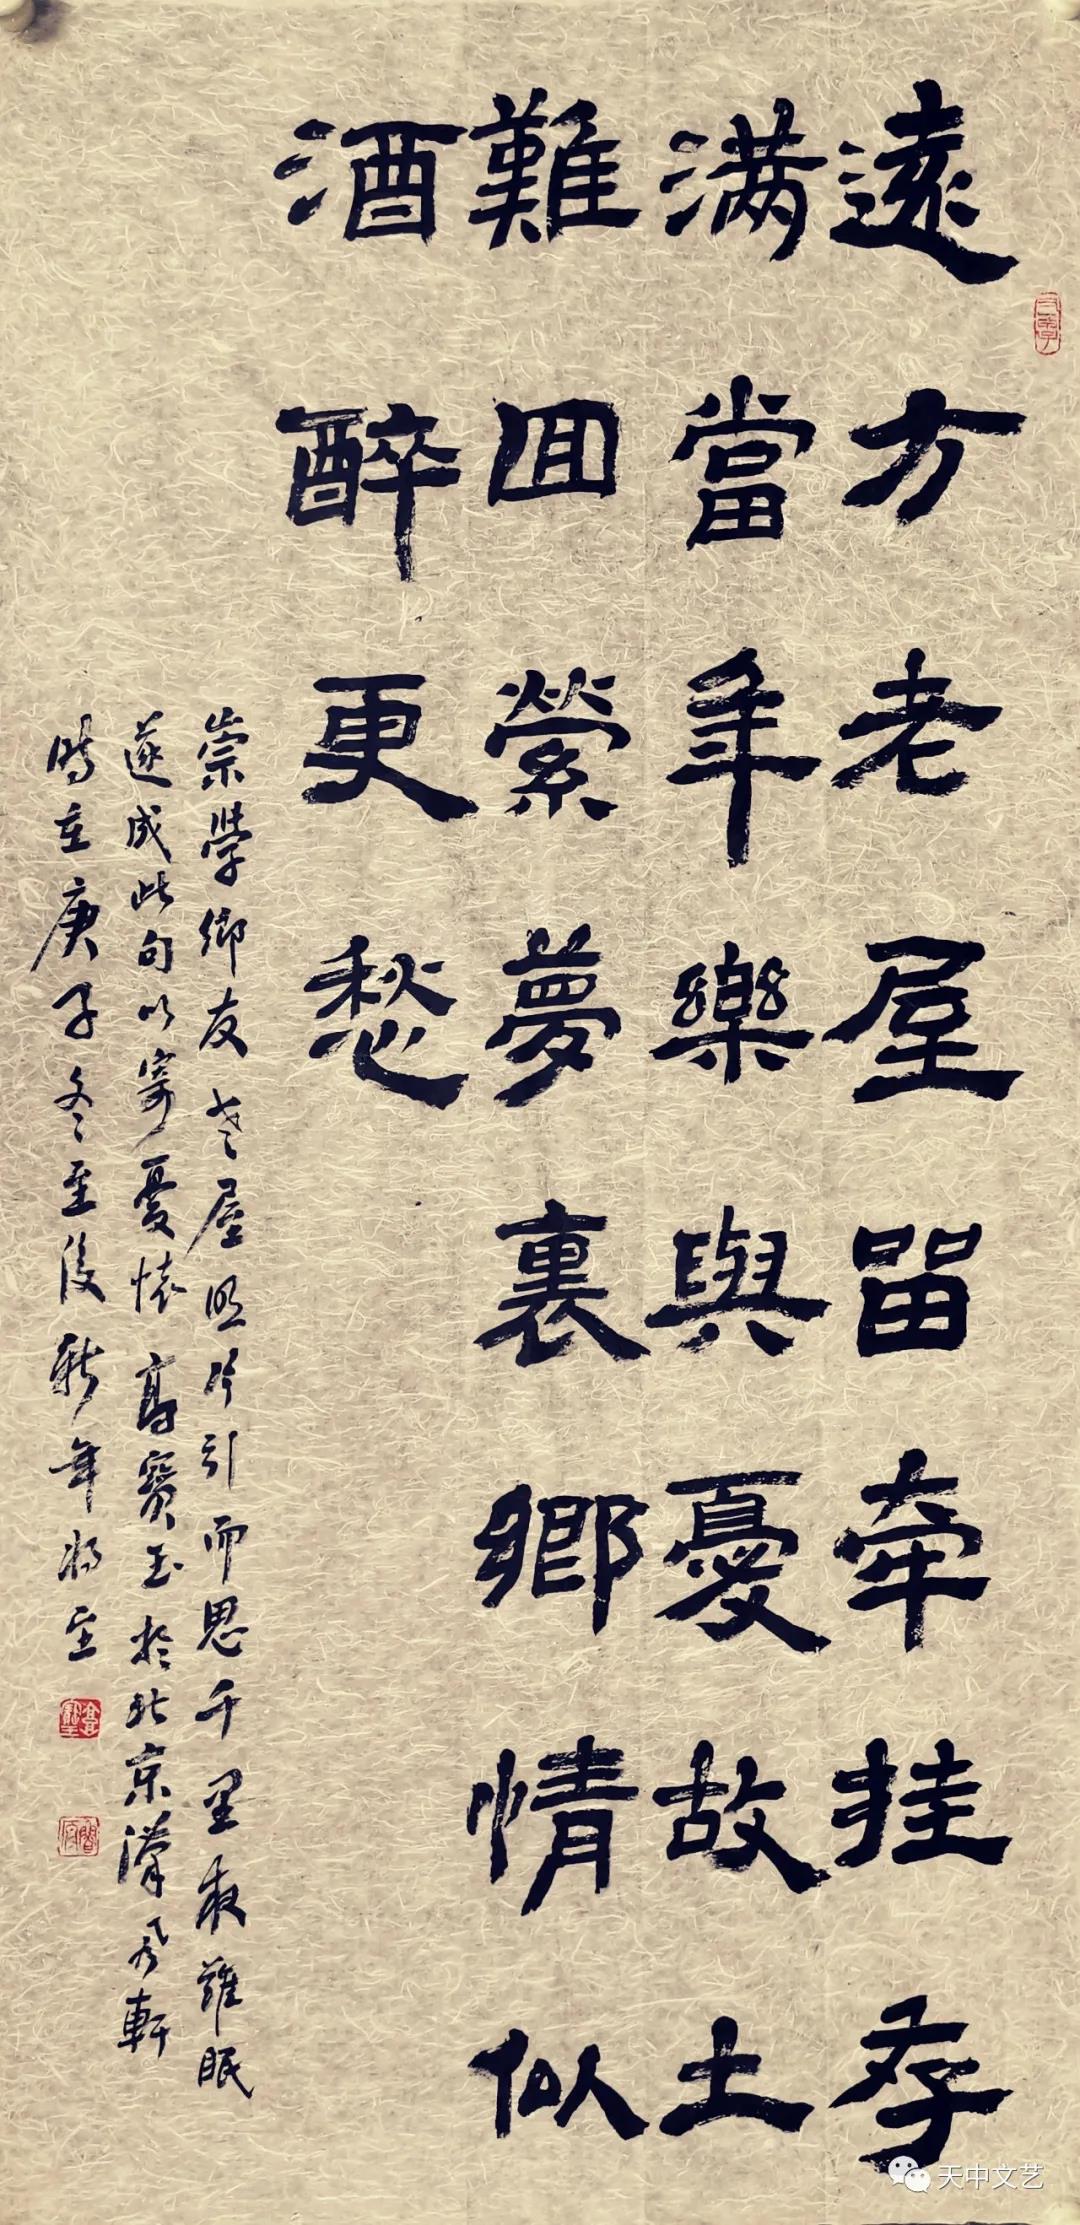 遠方老屋畱牽挂存
满當年樂與憂故土
難回縈夢裏鄉情似
酒醉更愁
崇學鄉友老屋即吟引而思千里夜難眠
遂成此句以寄憂懷高寶玉於北京漢風軒
時在庚子冬至後新年將至
天中文艺